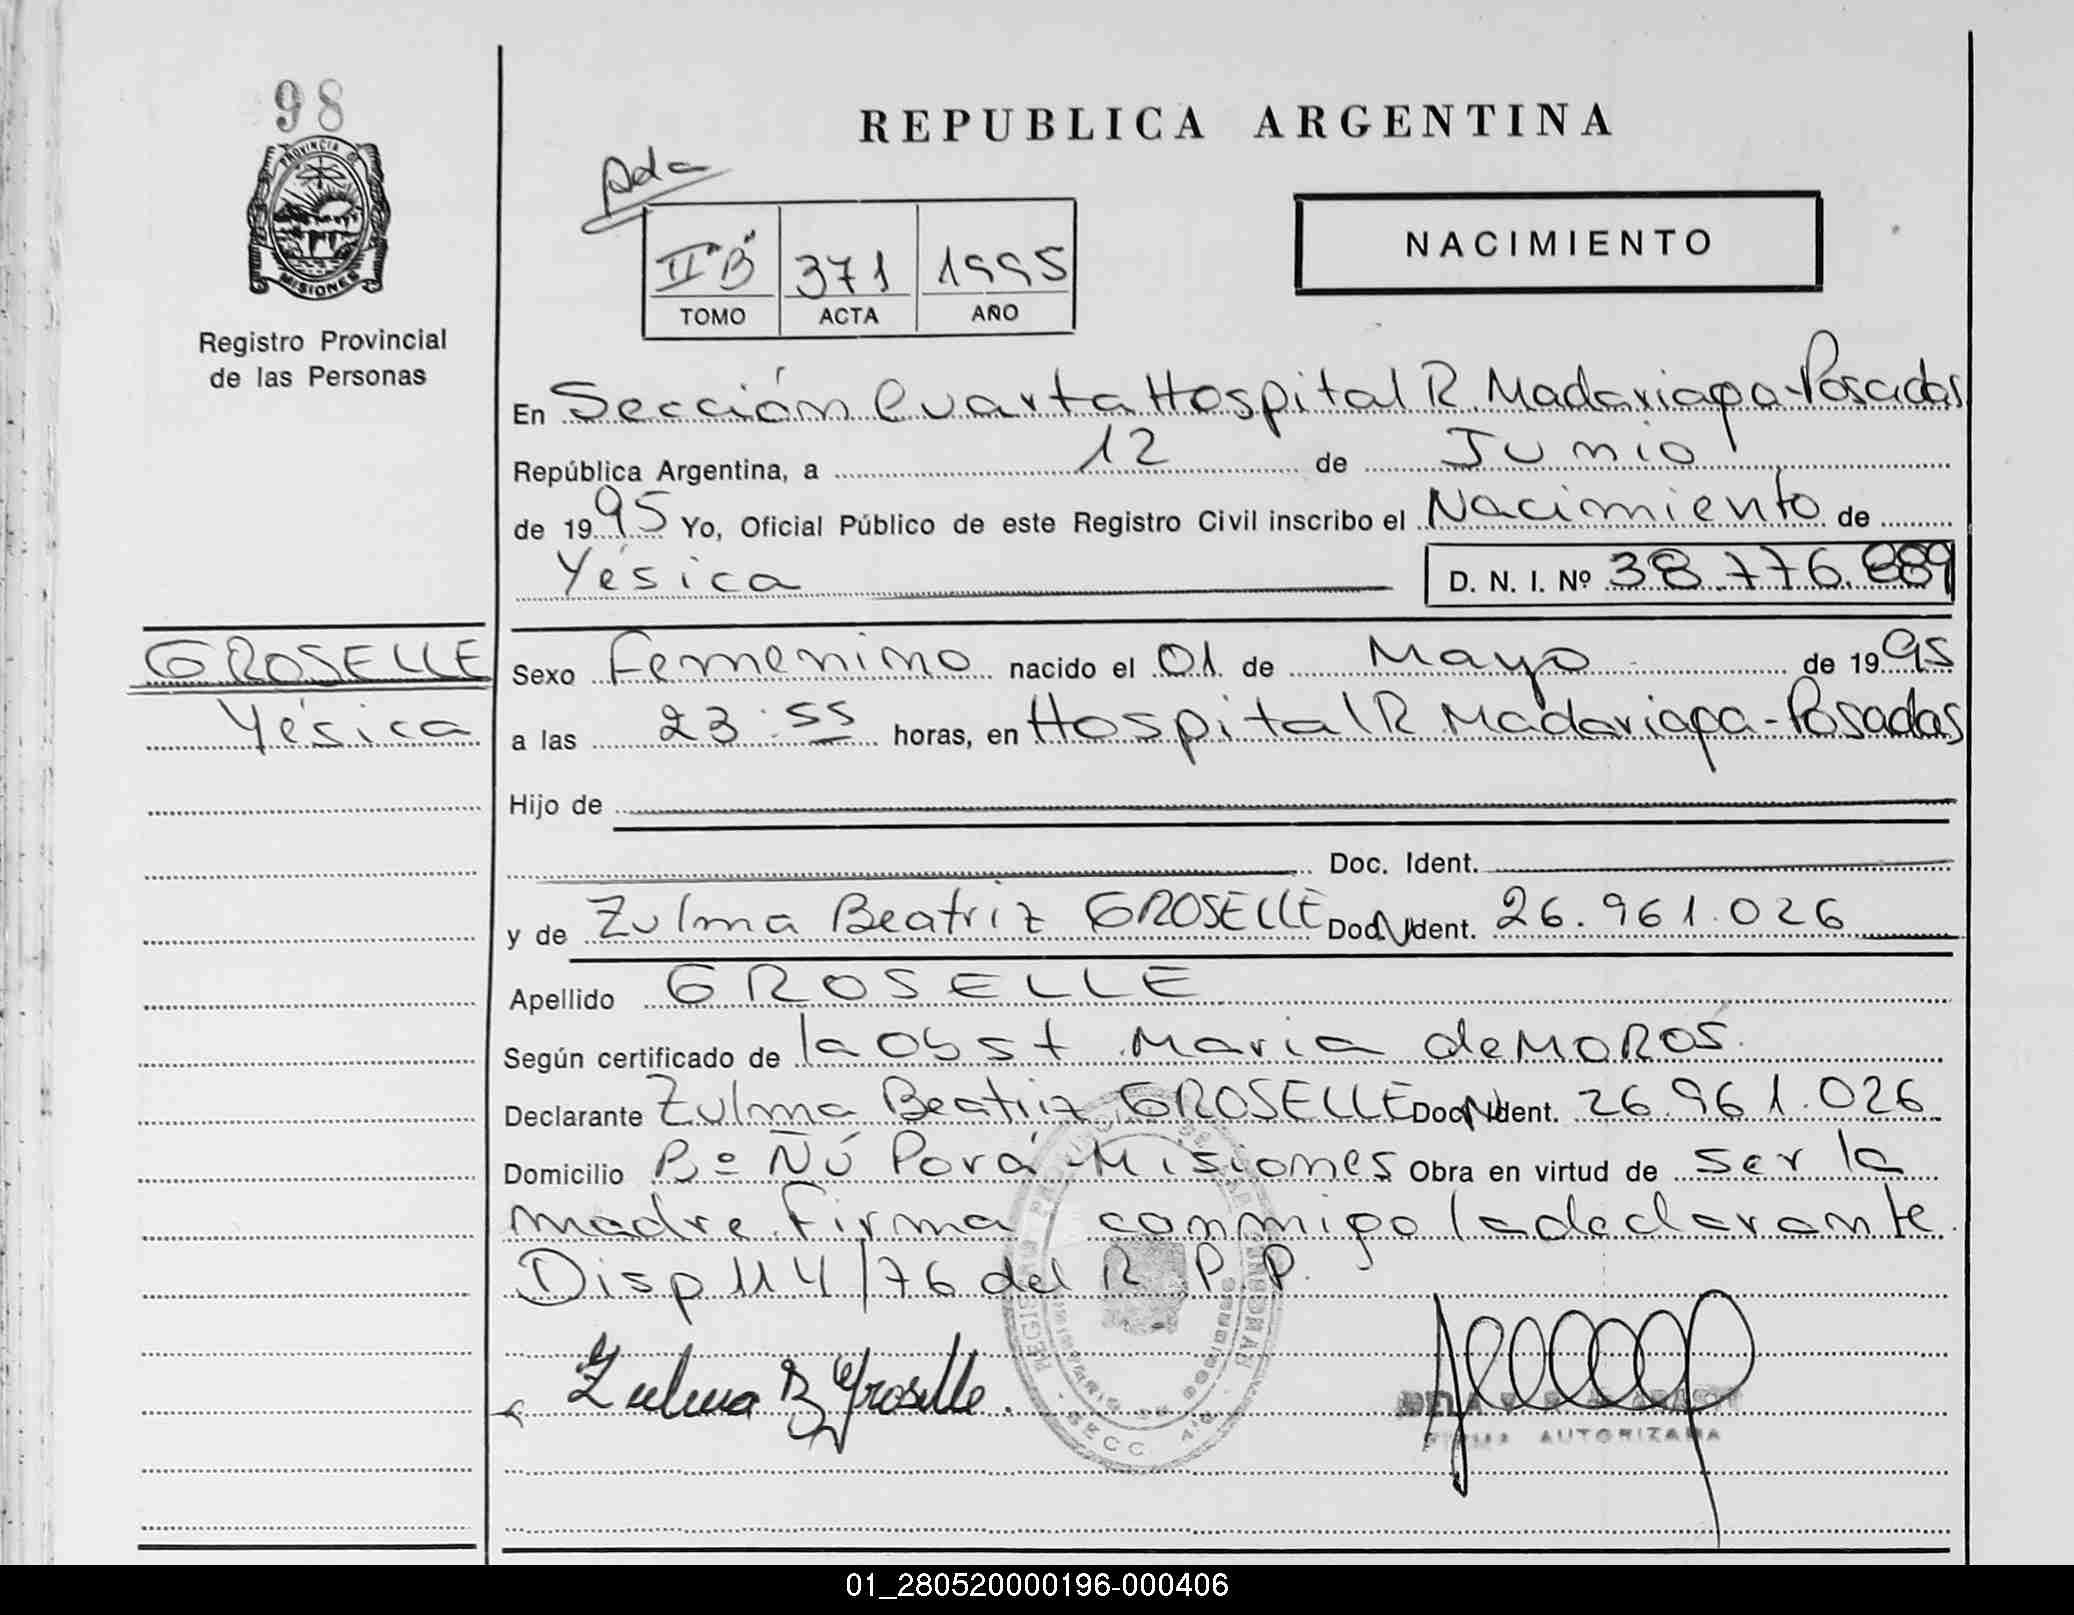 98
REPUBLICA ARGENTINA
PROVINCIA DE
MISIONES
Registro Provincial
de las Personas
II "B" 371 1995
TOMO ACTA AÑO
NACIMIENTO
En Sección Cuarta Hospital R. Madariaga-Posadas
República Argentina, a 12 de Junio
de 1995 Yo, Oficial Público de este Registro Civil inscribo el Nacimiento de
Yésica D. N. I. Nº 38.776.889
GROSELLE
Yésica
Sexo Femenino nacido el 01 de Mayo de 1995
a las 23:55 horas, en Hospital R Madariaga-Posadas
Hijo de
Doc. Ident.
y de Zulma Beatriz GROSELLE Doc. N Ident. 26.961.026
Apellido GROSELLE
Según certificado de la Obst María de MOROS
Declarante Zulma Beatriz GROSELLE Doc. N Ident. 26.961.026
Domicilio Bº Ñú Porá-Misiones Obra en virtud de ser la
madre. Firma conmigo la declarante.
Disp 114/76 del R.P.P.
Zulma B Groselle.
FIRMA AUTORIZADA
01_280520000196-000406